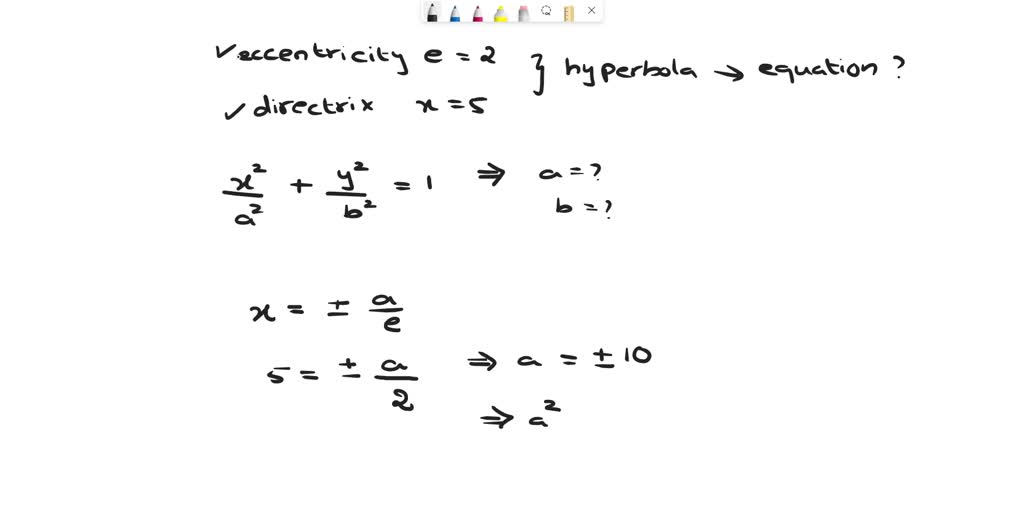 ✓eccentricity e = 2 } hyperbola → equation ?
✓ directrix x = 5
x²/a² + y²/b² = 1 ⇒ a = ?
b = ?
x = ± a/e
5 = ± a/2 ⇒ a = ± 10
⇒ a²